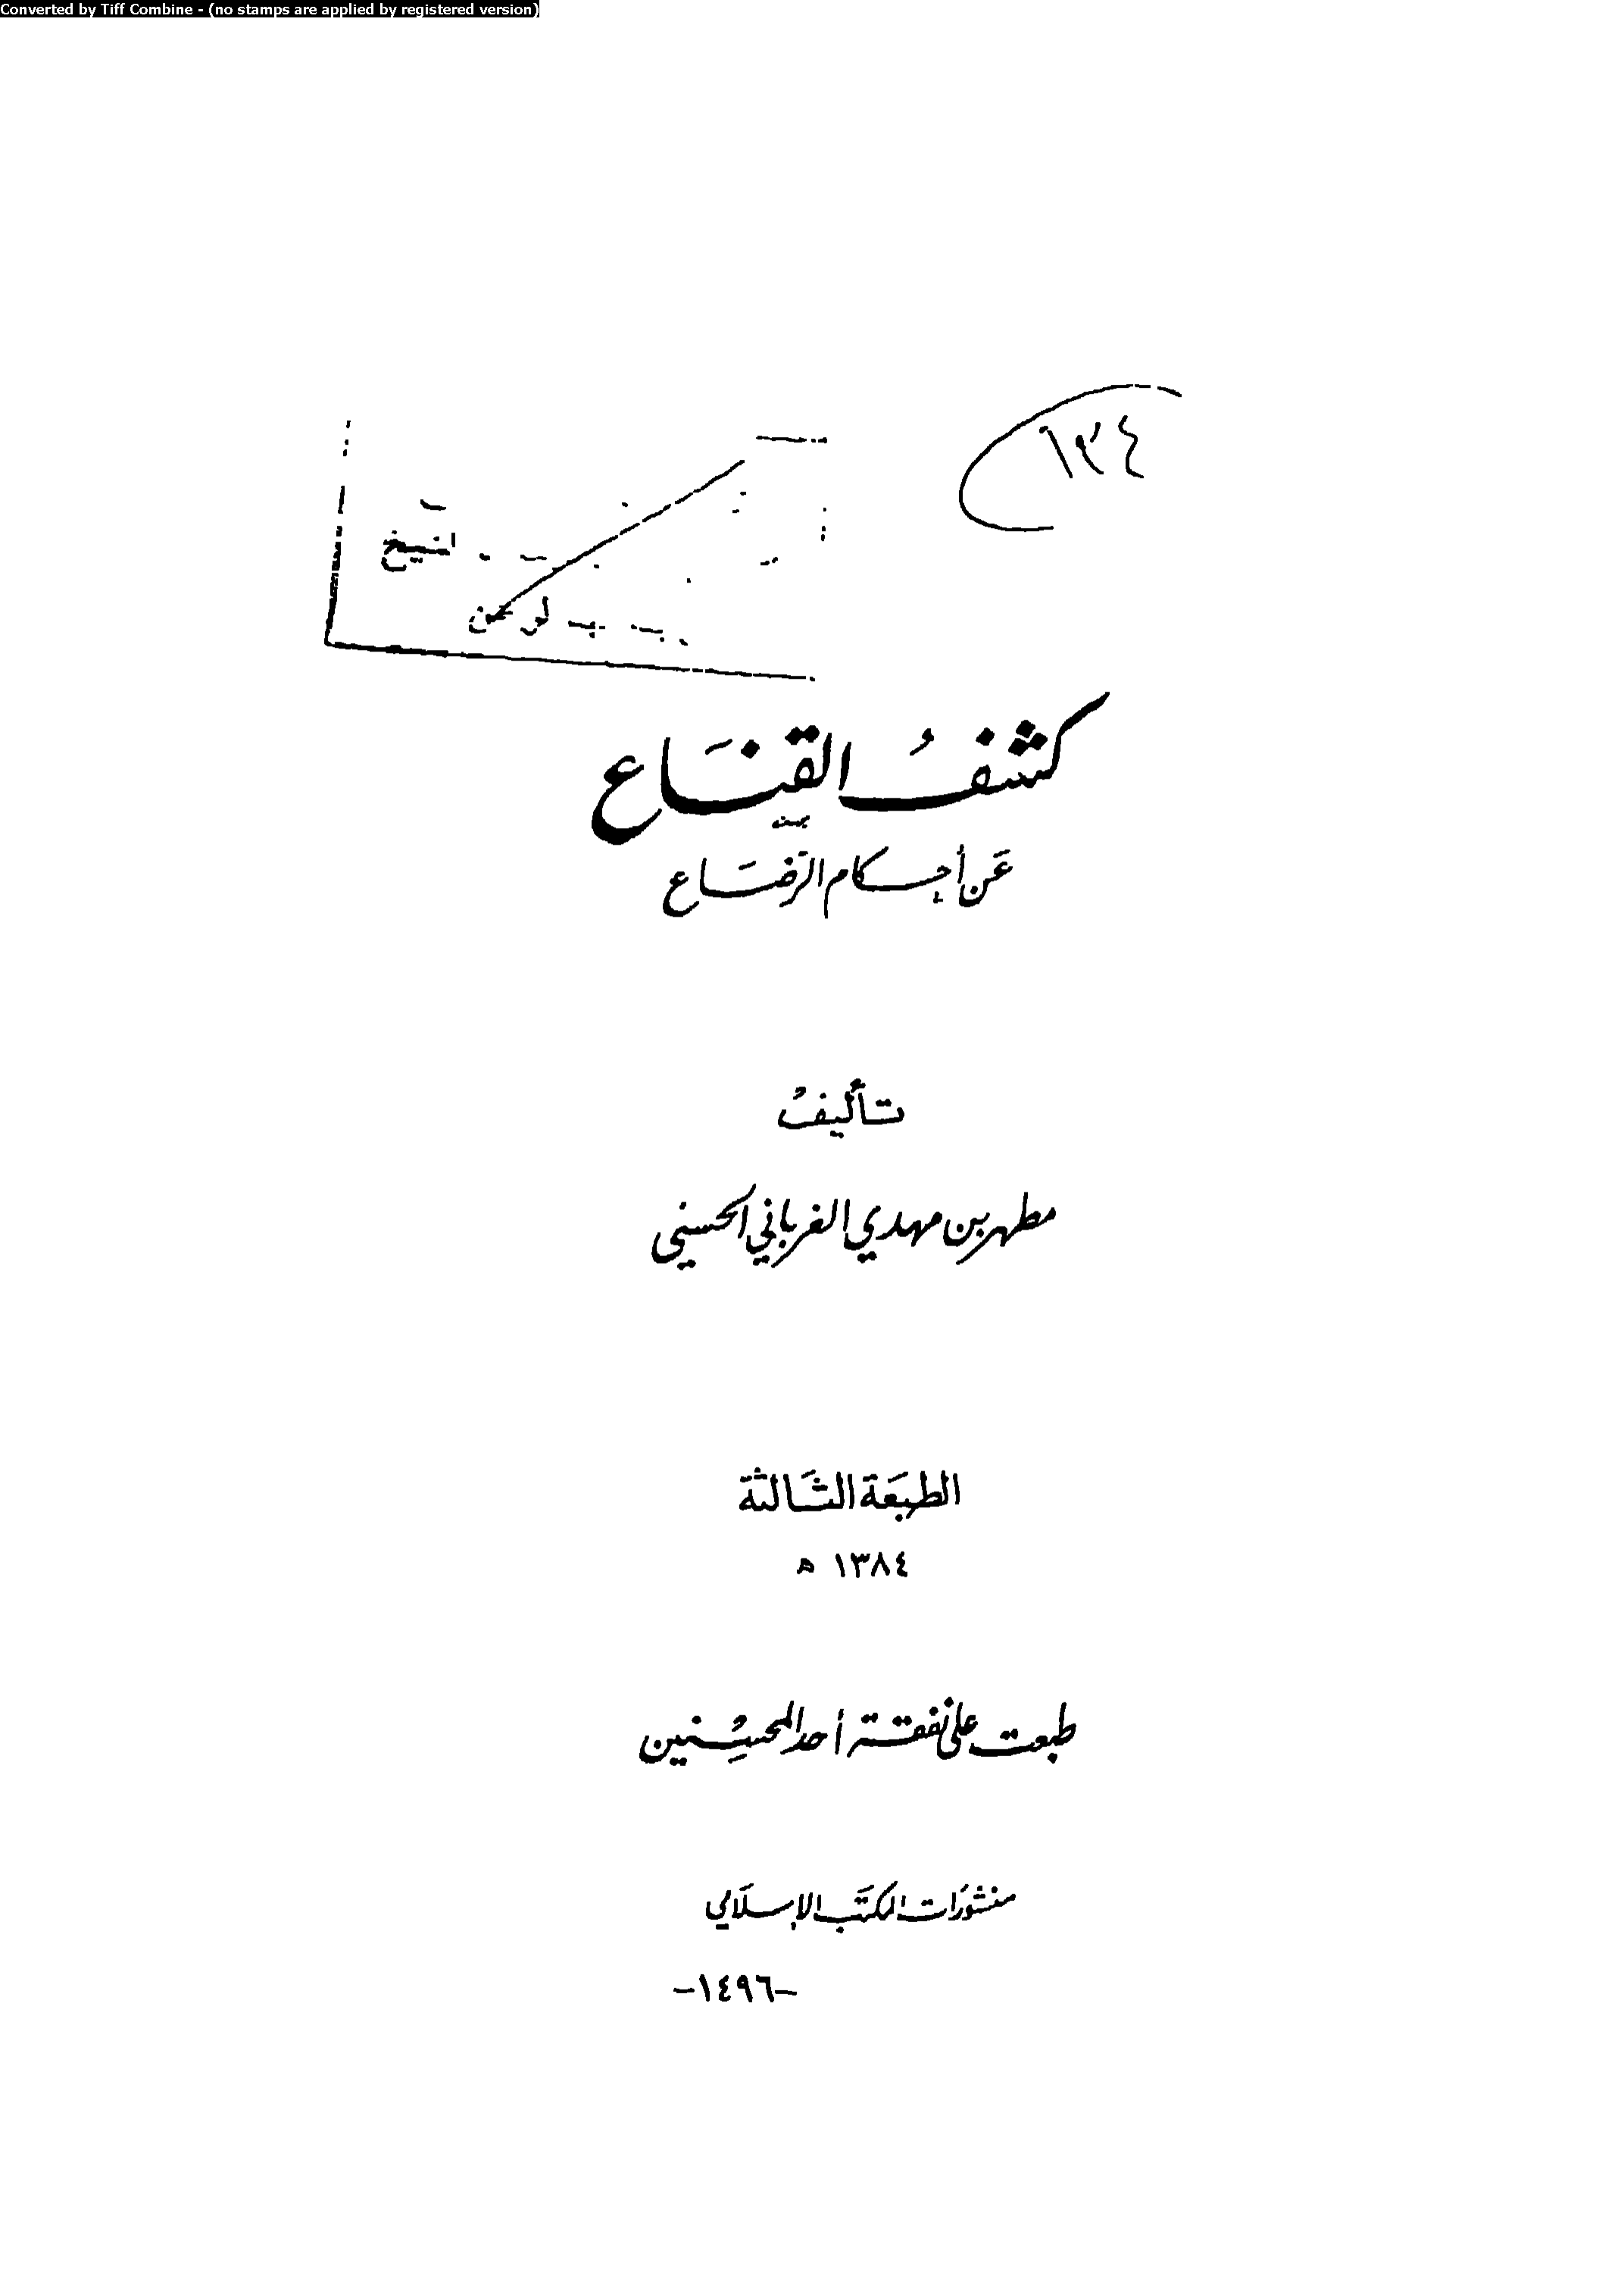 Converted by Tiff Combine - (no stamps are applied by registered version)
١٣٤
كشف القناع
عن أحكام الرضاع
تأليف
مطهر بن مهدي الغرباني الحسني
الطبعة الثالثة
١٣٨٤ ه
طبعت على نفقة أحد المحسنين
منشورات المكتب الإسلامي
-١٤٩٦-